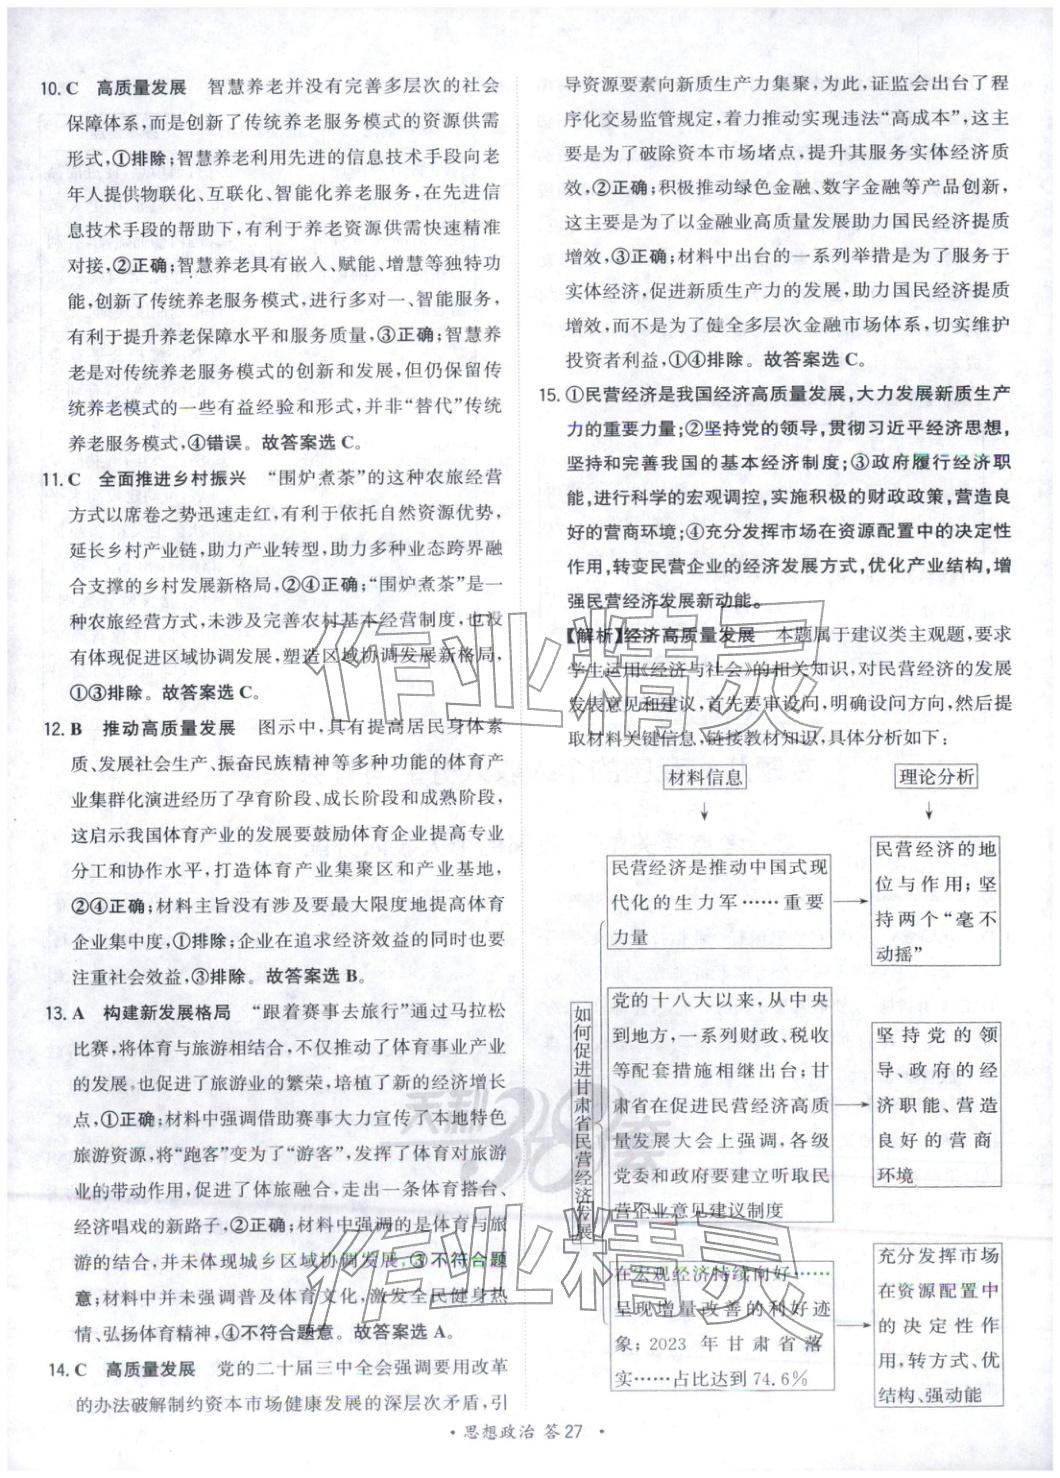 10. C　高质量发展　智慧养老并没有完善多层次的社会
保障体系,而是创新了传统养老服务模式的资源供需
形式,①排除;智慧养老利用先进的信息技术手段向老
年人提供物联化、互联化、智能化养老服务,在先进信
息技术手段的帮助下,有利于养老资源供需快速精准
对接,②正确;智慧养老具有嵌入、赋能、增慧等独特功
能,创新了传统养老服务模式,进行多对一、智能服务,
有利于提升养老保障水平和服务质量,③正确;智慧养
老是对传统养老服务模式的创新和发展,但仍保留传
统养老模式的一些有益经验和形式,并非“替代”传统
养老服务模式,④错误。故答案选 C。
11. C　全面推进乡村振兴　“围炉煮茶”的这种农旅经营
方式以席卷之势迅速走红,有利于依托自然资源优势,
延长乡村产业链,助力产业转型,助力多种业态跨界融
合支撑的乡村发展新格局,②④正确;“围炉煮茶”是一
种农旅经营方式,未涉及完善农村基本经营制度,也没
有体现促进区域协调发展,塑造区域协调发展新格局,
①③排除。故答案选 C。
12. B　推动高质量发展　图示中,具有提高居民身体素
质、发展社会生产、振奋民族精神等多种功能的体育产
业集群化演进经历了孕育阶段、成长阶段和成熟阶段,
这启示我国体育产业的发展要鼓励体育企业提高专业
分工和协作水平,打造体育产业集聚区和产业基地,
②④正确;材料主旨没有涉及要最大限度地提高体育
企业集中度,①排除;企业在追求经济效益的同时也要
注重社会效益,③排除。故答案选 B。
13. A　构建新发展格局　“跟着赛事去旅行”通过马拉松
比赛,将体育与旅游相结合,不仅推动了体育事业产业
的发展,也促进了旅游业的繁荣,培植了新的经济增长
点,①正确;材料中强调借助赛事大力宣传了本地特色
旅游资源,将“跑客”变为了“游客”,发挥了体育对旅游
业的带动作用,促进了体旅融合,走出一条体育搭台、
经济唱戏的新路子,②正确;材料中强调的是体育与旅
游的结合,并未体现城乡区域协调发展,③不符合题
意;材料中并未强调普及体育文化,激发全民健身热
情、弘扬体育精神,④不符合题意。故答案选 A。
14. C　高质量发展　党的二十届三中全会强调要用改革
的办法破解制约资本市场健康发展的深层次矛盾,引
导资源要素向新质生产力集聚,为此,证监会出台了程
序化交易监管规定,着力推动实现违法“高成本”,这主
要是为了破除资本市场堵点,提升其服务实体经济质
效,②正确;积极推动绿色金融、数字金融等产品创新,
这主要是为了以金融业高质量发展助力国民经济提质
增效,③正确;材料中出台的一系列举措是为了服务于
实体经济,促进新质生产力的发展,助力国民经济提质
增效,而不是为了健全多层次金融市场体系,切实维护
投资者利益,①④排除。故答案选 C。
15. ①民营经济是我国经济高质量发展,大力发展新质生产
力的重要力量;②坚持党的领导,贯彻习近平经济思想,
坚持和完善我国的基本经济制度;③政府履行经济职
能,进行科学的宏观调控,实施积极的财政政策,营造良
好的营商环境;④充分发挥市场在资源配置中的决定性
作用,转变民营企业的经济发展方式,优化产业结构,增
强民营经济发展新动能。
【解析】经济高质量发展　本题属于建议类主观题,要求
学生运用《经济与社会》的相关知识,对民营经济的发展
发表意见和建议,首先要审设问,明确设问方向,然后提
取材料关键信息,链接教材知识,具体分析如下:
材料信息
理论分析
如何促进甘肃省民营经济发展
民营经济是推动中国式现
代化的生力军……重要
力量
民营经济的地
位与作用;坚
持两个“毫不
动摇”
党的十八大以来,从中央
到地方,一系列财政、税收
等配套措施相继出台;甘
肃省在促进民营经济高质
量发展大会上强调,各级
党委和政府要建立听取民
营企业意见建议制度
坚持党的领
导、政府的经
济职能、营造
良好的营商
环境
在宏观经济持续向好……
呈现增量改善的利好迹
象;2023 年甘肃省落
实……占比达到 74.6%
充分发挥市场
在资源配置中
的决定性作
用,转方式、优
结构、强动能
作业精灵
天利38套
作业精灵
· 思想政治 答 27 ·